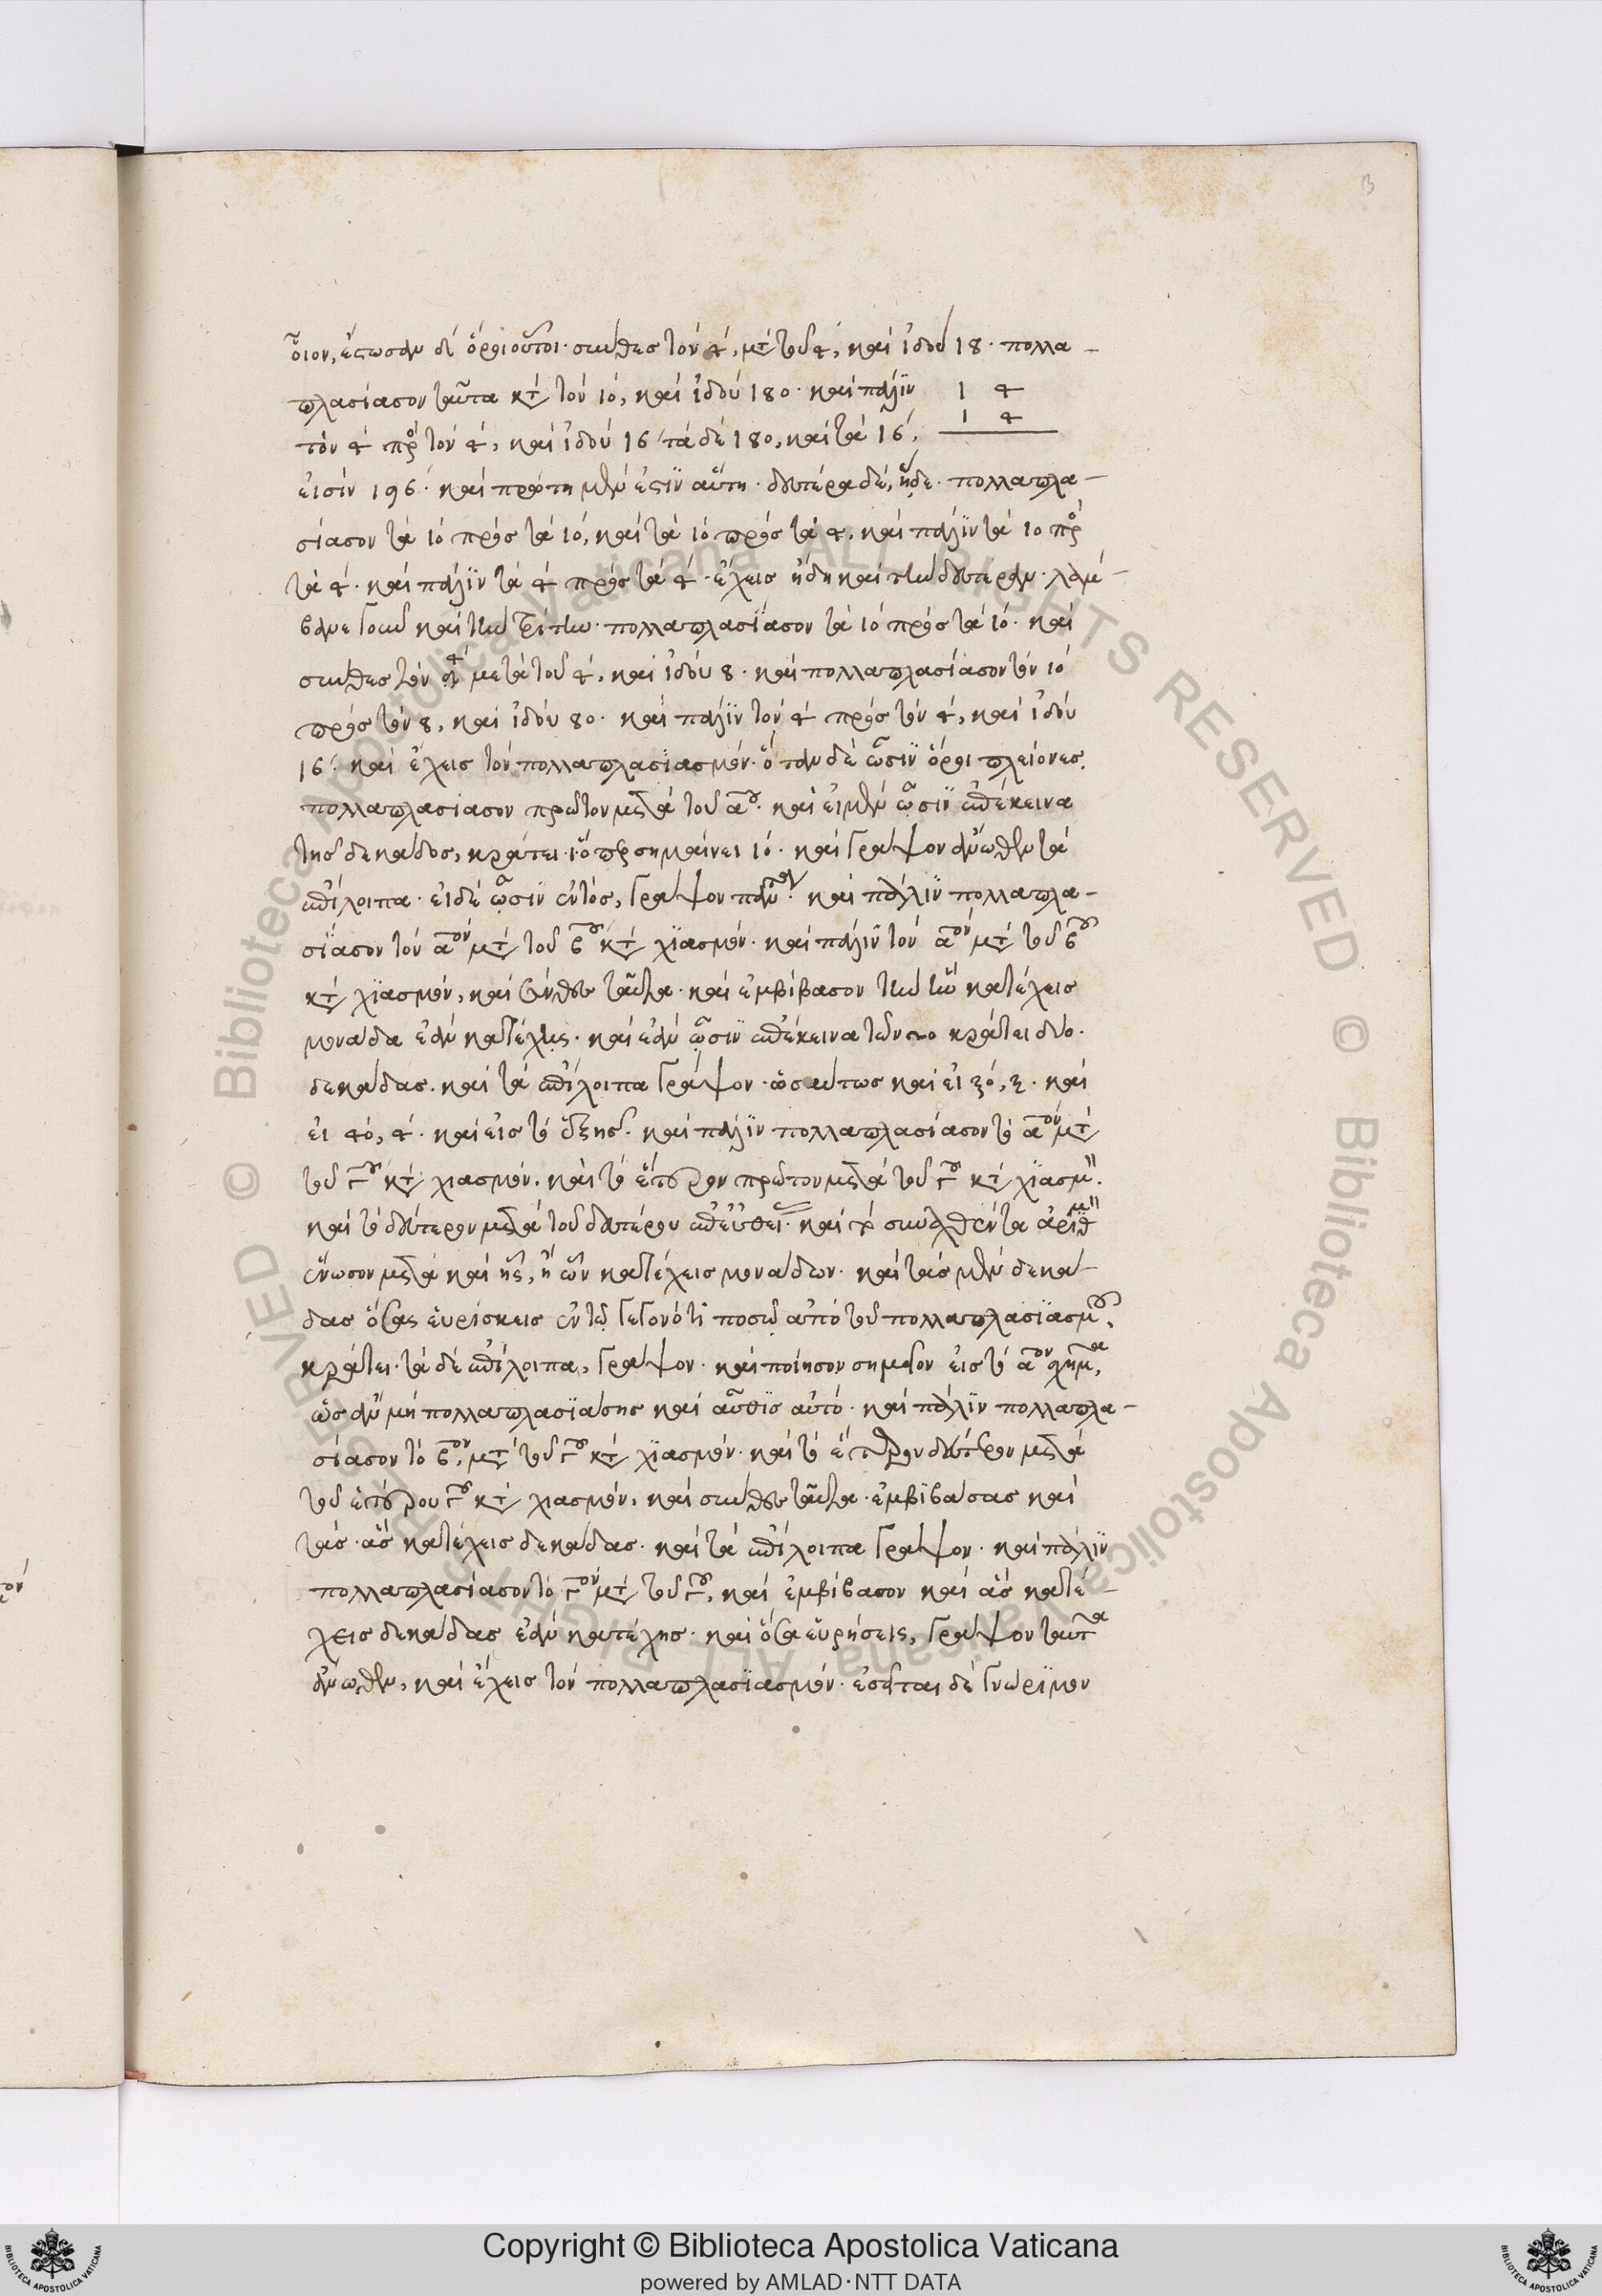 οἷον, ἔστωσαν οἱ ὅροι οὗτοι· σύνθες τὸν 4, μετὰ τοῦ 4, καὶ ἰδοὺ 18· πολλα-
πλασίασον ταῦτα κατὰ τὸν 10, καὶ ἰδοὺ 180· καὶ πάλιν 1 4
τὸν 4 πρὸς τὸν 4, καὶ ἰδοὺ 16· τὰ δὲ 180, καὶ τὰ 16, 1 4
εἰσὶν 196· καὶ πρώτη μὲν ἐστὶν αὕτη· δευτέρα δὲ, ἥδε· πολλαπλα-
σίασον τὰ 10 πρὸς τὰ 10, καὶ τὰ 10 πρὸς τὰ 4, καὶ πάλιν τὰ 10 πρὸς
τὰ 4· καὶ πάλιν τὰ 4 πρὸς τὰ 4· ἔχεις ἤδη καὶ τὴν δευτέραν· λάμ-
βανε γοῦν καὶ τὴν τρίτην· πολλαπλασίασον τὰ 10 πρὸς τὰ 10· καὶ
σύνθες τὸν 4 μετὰ τοῦ 4, καὶ ἰδοὺ 8· καὶ πολλαπλασίασον τὸν 10
πρὸς τὸν 8, καὶ ἰδοὺ 80· καὶ πάλιν τὸν 4 πρὸς τὸν 4, καὶ ἰδοὺ
16· καὶ ἔχεις τὸν πολλαπλασιασμόν· ὅταν δὲ ὦσιν ὅροι πλείονες,
πολλαπλασίασον πρῶτον μετὰ τοῦ αου· καὶ εἰ μὲν ὦσιν ἐπέκεινα
τῆς δεκάδος, κράτει 1 ὅπερ σημαίνει 10· καὶ γράψον ἄνωθεν τὰ
ἐπίλοιπα· εἰ δὲ ὦσιν ἐντὸς, γράψον πάντα· καὶ πάλιν πολλαπλα-
σίασον τὸν αον μετὰ τοῦ βου κατὰ χιασμόν· καὶ πάλιν τὸν αον μετὰ τοῦ βου
κατὰ χιασμόν, καὶ σύνθες ταῦτα· καὶ ἐμβίβασον τὴν ἣν κατέχεις
μονάδα ἐὰν κατέχῃς· καὶ ἐὰν ὦσιν ἐπέκεινα τῶν 20 κράτει δύο
δεκάδας· καὶ τὰ ἐπίλοιπα γράψον· ὡσαύτως καὶ εἰ 30, 3· καὶ
εἰ 40, 4· καὶ εἰς τὸ ἑξῆς· καὶ πάλιν πολλαπλασίασον τὸ αον μετὰ
τοῦ γου κατὰ χιασμόν· καὶ τὸ ἕτερον πρῶτον μετὰ τοῦ γου κατὰ χιασμ·
καὶ τὸ δεύτερον μετὰ τοῦ δευτέρου ἐπευθείας· καὶ τὸν συναχθέντα ἀριθμ
ἕνωσον μετὰ καὶ ἧς, ἢ ὧν κατέχεις μονάδων· καὶ τὰς μὲν δεκά-
δας ὅσας εὑρίσκεις ἐν τῷ γεγονότι ποσῷ ἀπὸ τοῦ πολλαπλασιασμοῦ,
κράτει· τὰ δὲ ἐπίλοιπα, γράψον· καὶ ποίησον σημεῖον εἰς τὸ αον σχῆμα,
ὡς ἂν μὴ πολλαπλασιάσῃς καὶ αὖθις αὐτό· καὶ πάλιν πολλαπλα-
σίασον τὸ βον, μετὰ τοῦ γου κατὰ χιασμόν· καὶ τὸ ἕτερον δεύτερον μετὰ
τοῦ ἑτέρου γου κατὰ χιασμόν, καὶ σύνθες ταῦτα· ἐμβιβάσας καὶ
τὰς ἃς κατέχεις δεκάδας· καὶ τὰ ἐπίλοιπα γράψον· καὶ πάλιν
πολλαπλασίασον τὸ γον μετὰ τοῦ γου, καὶ ἐμβίβασον καὶ ἃς κατέ-
χεις δεκάδας ἐὰν κατέχῃς· καὶ ὅσα εὑρήσεις, γράψον ταῦτα
ἄνωθεν, καὶ ἔχεις τὸν πολλαπλασιασμόν· ἔσεται δὲ γνώριμον
Copyright © Biblioteca Apostolica Vaticana
powered by AMLAD·NTT DATA